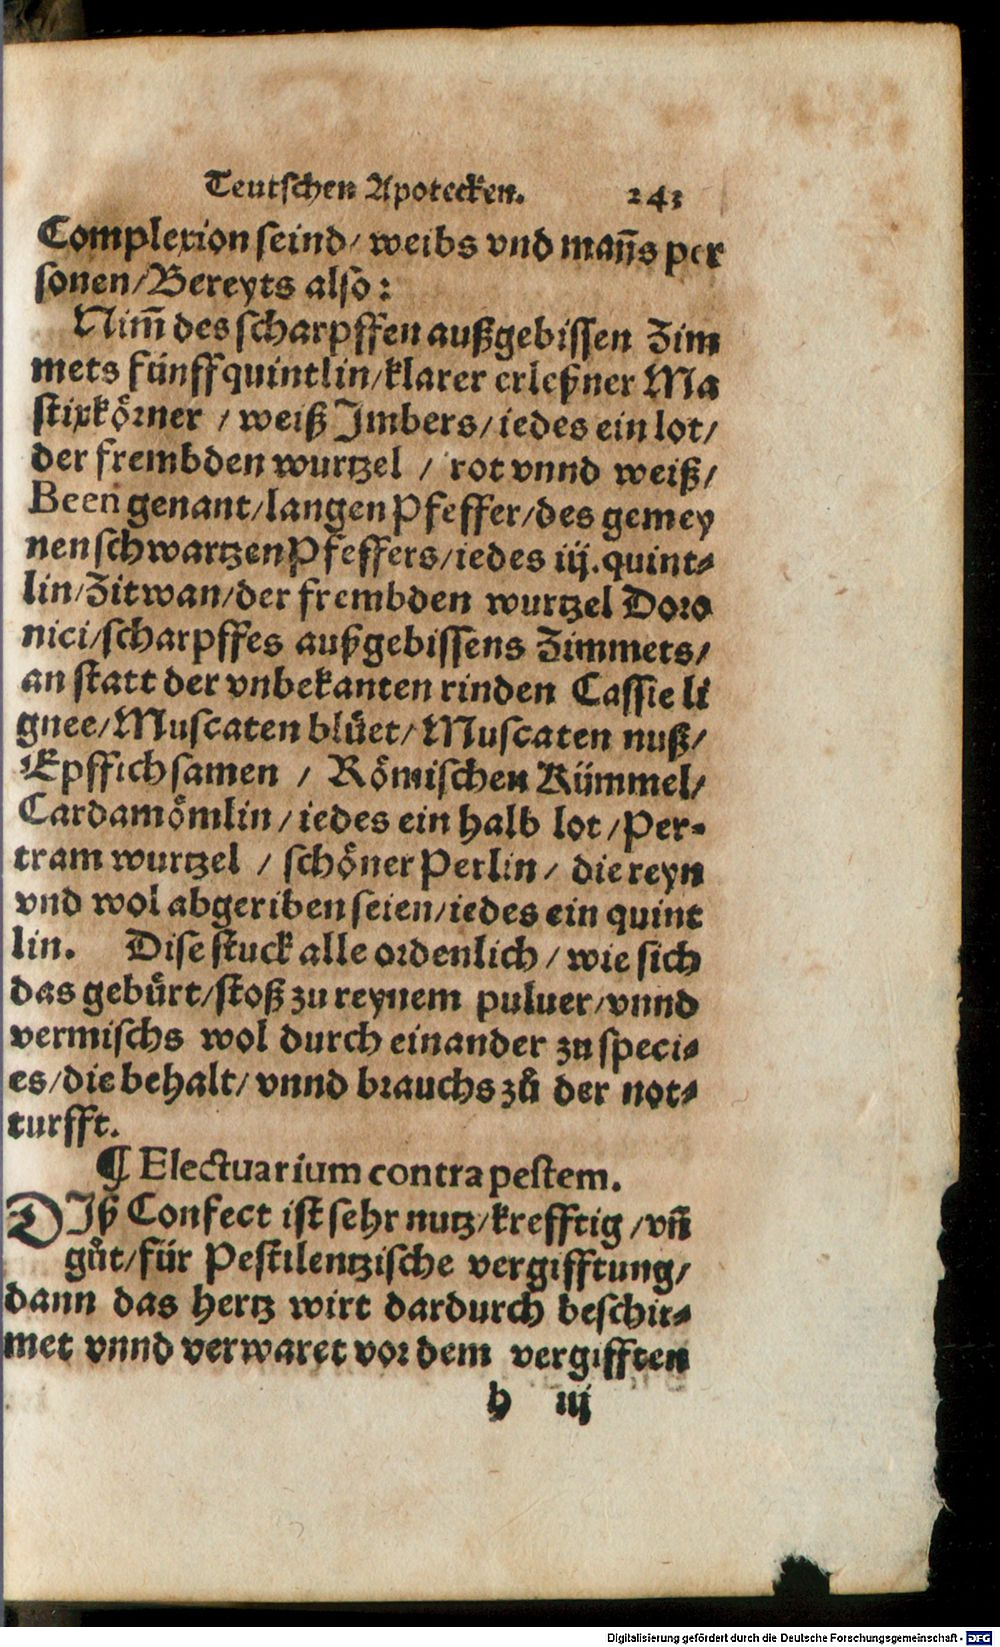 Teutschen Apotecken. 243
Complexion seind/ weibs vnd mañs per
sonen/Bereyts also:
Nim̃ des scharpffen außgebissen Zim
mets fünff quintlin/klarer erleßner Ma
stixkörner / weiß Jmbers/iedes ein lot/
der frembden wurtzel / rot vnnd weiß/
Been genant/langen Pfeffer/des gemey
nen schwartzen Pfeffers/iedes iij.quint⸗
lin/Zitwan/der frembden wurtzel Doro
nici/scharpffes außgebissens Zimmets/
an statt der vnbekanten rinden Cassie li
gnee/Muscaten blüet/Muscaten nuß/
Epffich samen / Römischen Kümmel/
Cardamömlin/iedes ein halb lot/Per⸗
tram wurtzel / schöner Perlin/ die reyn
vnd wol abgeriben seien/iedes ein quint
lin. Dise stuck alle ordenlich/wie sich
das gebürt/stoß zu reynem puluer/vnnd
vermischs wol durch einander zu speci⸗
es/die behalt/ vnnd brauchs zů der not⸗
turfft.
¶ Electuarium contra pestem.
DJß Confect ist sehr nutz/krefftig/vñ
gůt/für Pestilentzische vergifftung/
dann das hertz wirt dardurch beschir⸗
met vnnd verwaret vor dem vergifften
h iij
Digitalisierung gefördert durch die Deutsche Forschungsgemeinschaft - DFG